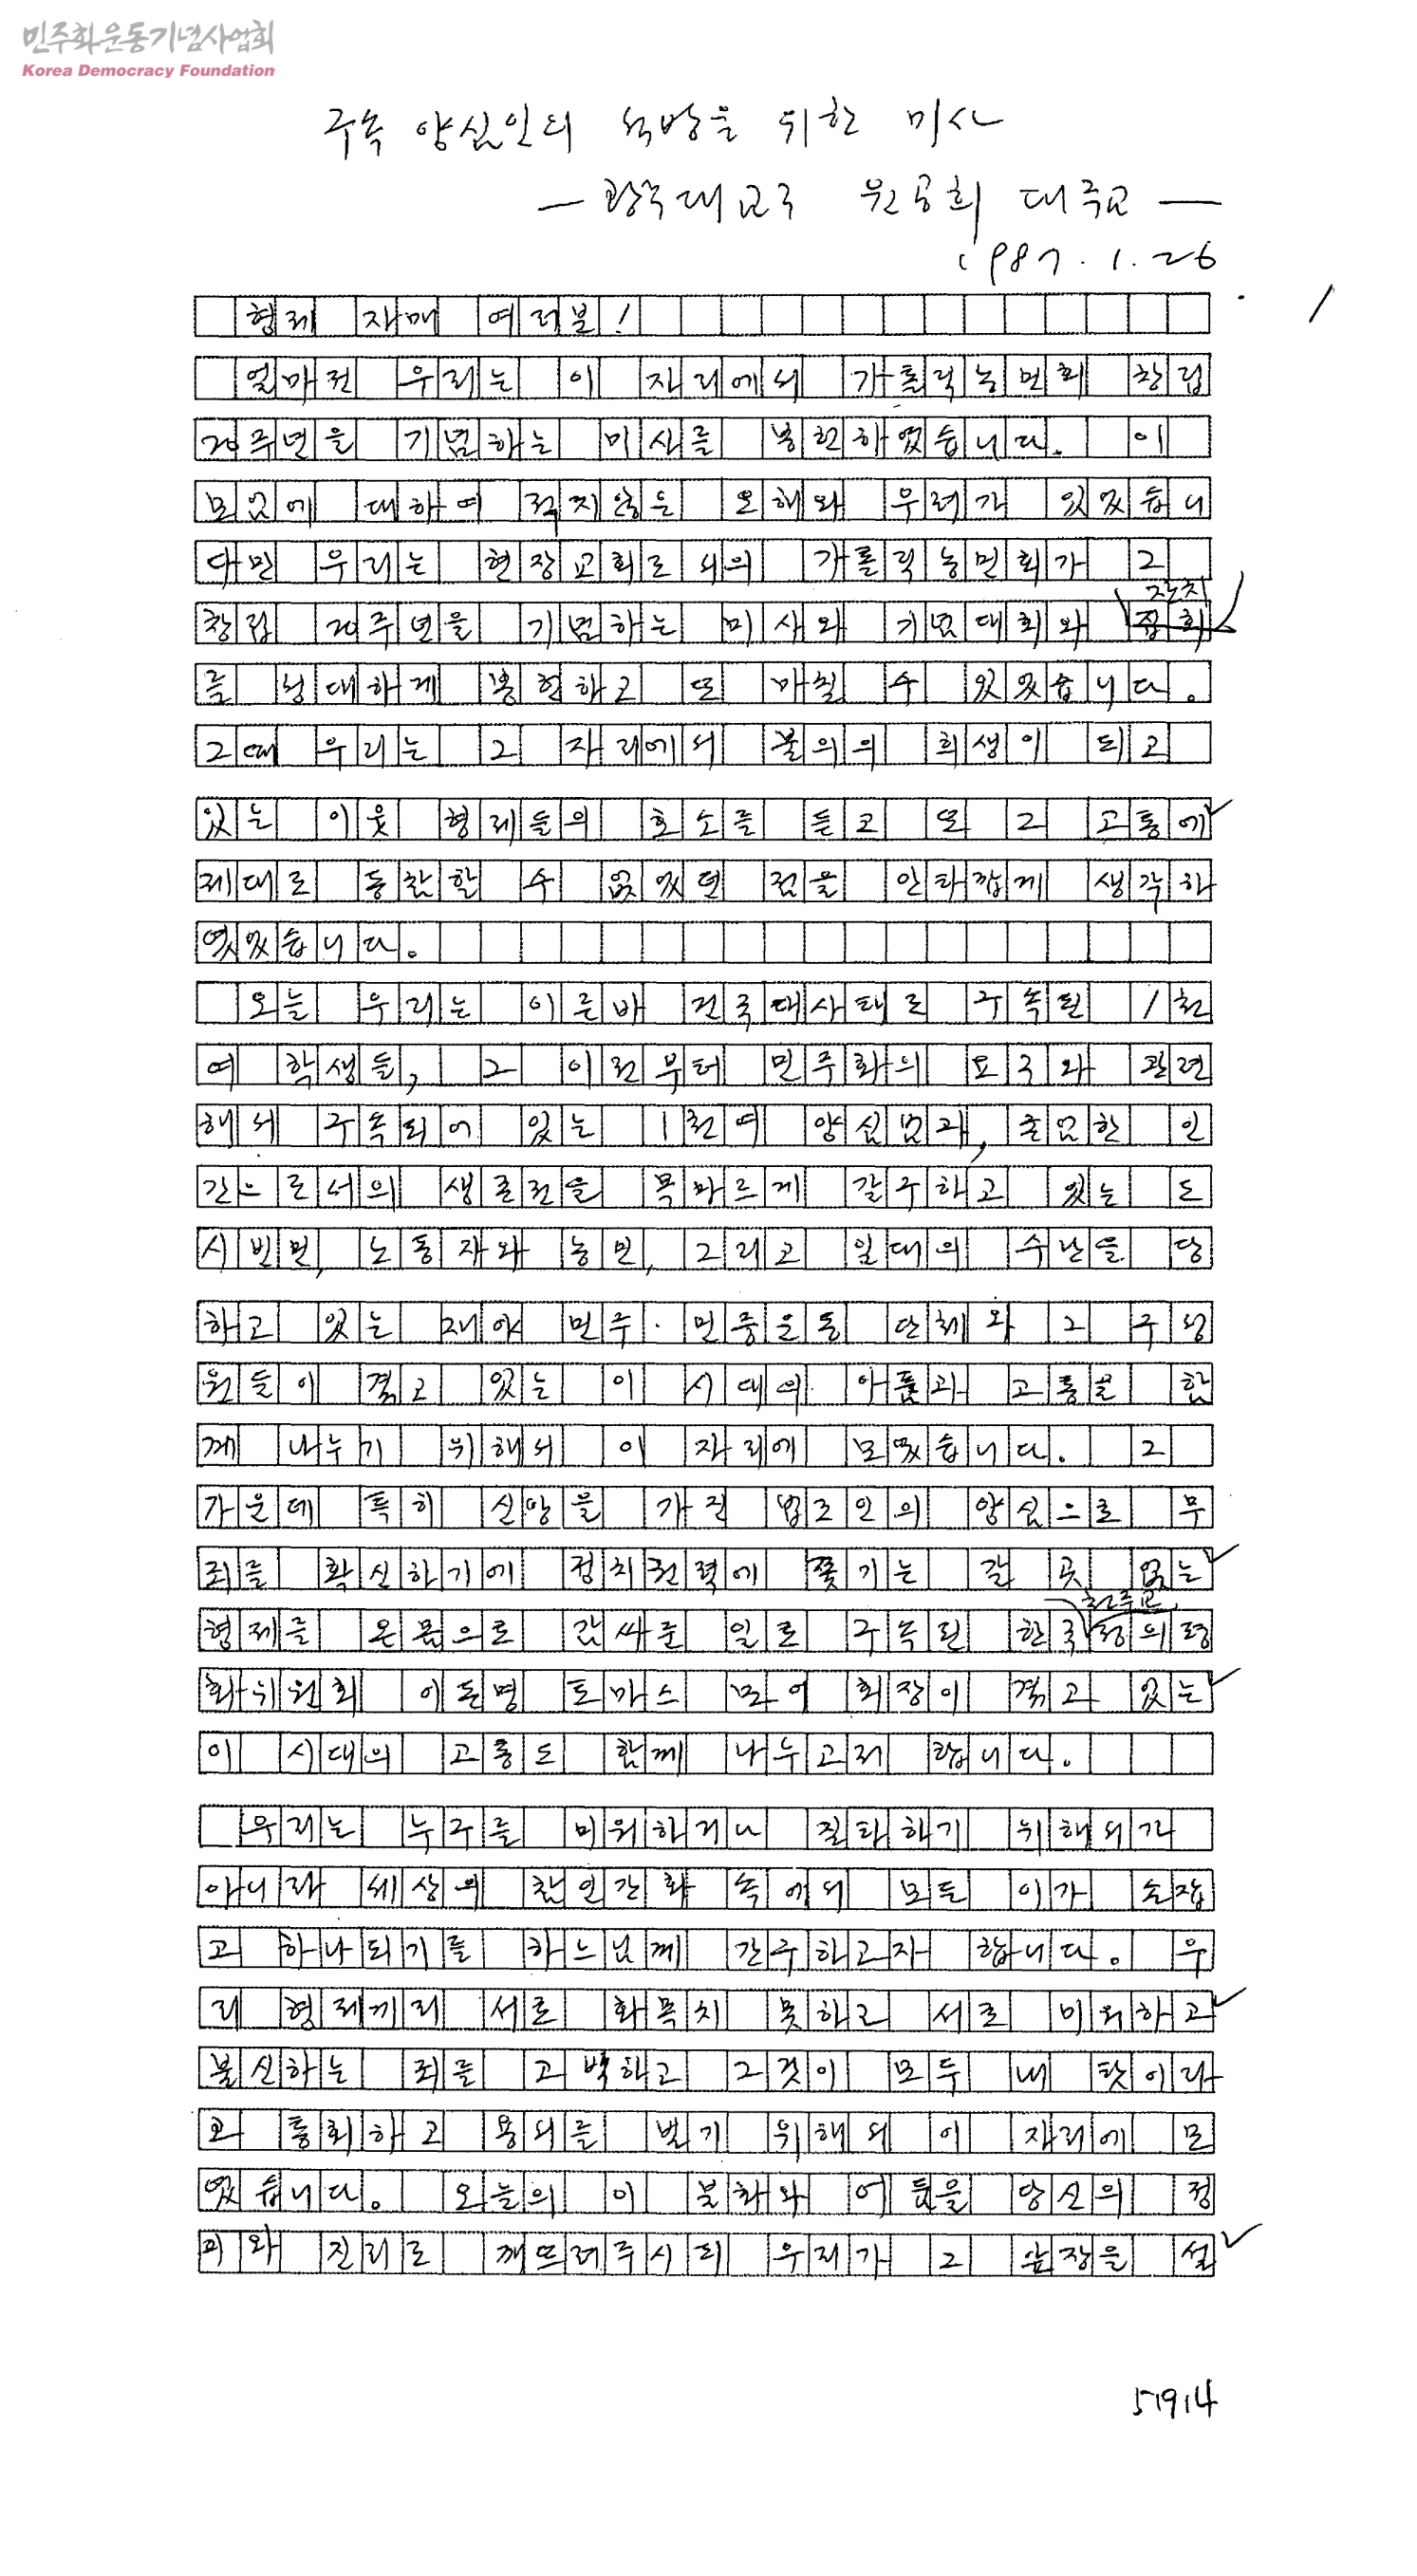 민주화운동기념사업회
Korea Democracy Foundation
구속 양심인의 석방을 위한 미사
— 광주대교구 윤공희 대주교 —
1987. 1. 26
1
형제 자매 여러분!
얼마전 우리는 이 자리에서 가톨릭농민회 창립
20주년을 기념하는 미사를 봉헌하였습니다. 이
모임에 대하여 적지않은 오해와 우려가 있었습니
다만 우리는 현장교회로서의 가톨릭농민회가 그
잔치
창립 20주년을 기념하는 미사와 기념대회와 집회
를 성대하게 봉헌하고 또 마칠 수 있었습니다.
그때 우리는 그 자리에서 불의의 희생이 되고
있는 이웃 형제들의 호소를 듣고 또 그 고통에
제대로 동참할 수 없었던 점을 안타깝게 생각하
였었습니다.
오늘 우리는 이른바 건국대사태로 구속된 1천
여 학생들, 그 이전부터 민주화의 요구와 관련
해서 구속되어 있는 1천여 양심범과, 존엄한 인
간으로서의 생존권을 목마르게 갈구하고 있는 도
시빈민, 노동자와 농민, 그리고 일대의 수난을 당
하고 있는 재야 민주·민중운동 단체와 그 구성
원들이 겪고 있는 이 시대의 아픔과 고통을 함
께 나누기 위해서 이 자리에 모였습니다. 그
가운데 특히 신앙을 가진 법조인의 양심으로 무
죄를 확신하기에 정치권력에 쫓기는 갈 곳 없는
천주교
형제를 온몸으로 감싸준 일로 구속된 한국정의평
화위원회 이돈명 토마스 모어 회장이 겪고 있는
이 시대의 고통도 함께 나누고저 합니다.
우리는 누구를 미워하거나 질타하기 위해서가
아니라 세상의 참인간화 속에서 모든 이가 손잡
고 하나되기를 하느님께 간구하고자 합니다. 우
리 형제끼리 서로 화목치 못하고 서로 미워하고
불신하는 죄를 고백하고 그것이 모두 내 탓이라
고 통회하고 용서를 빌기 위해서 이 자리에 모
였습니다. 오늘의 이 불화와 어둠을 당신의 정
의와 진리로 깨뜨려주시되 우리가 그 앞장을 설
51914